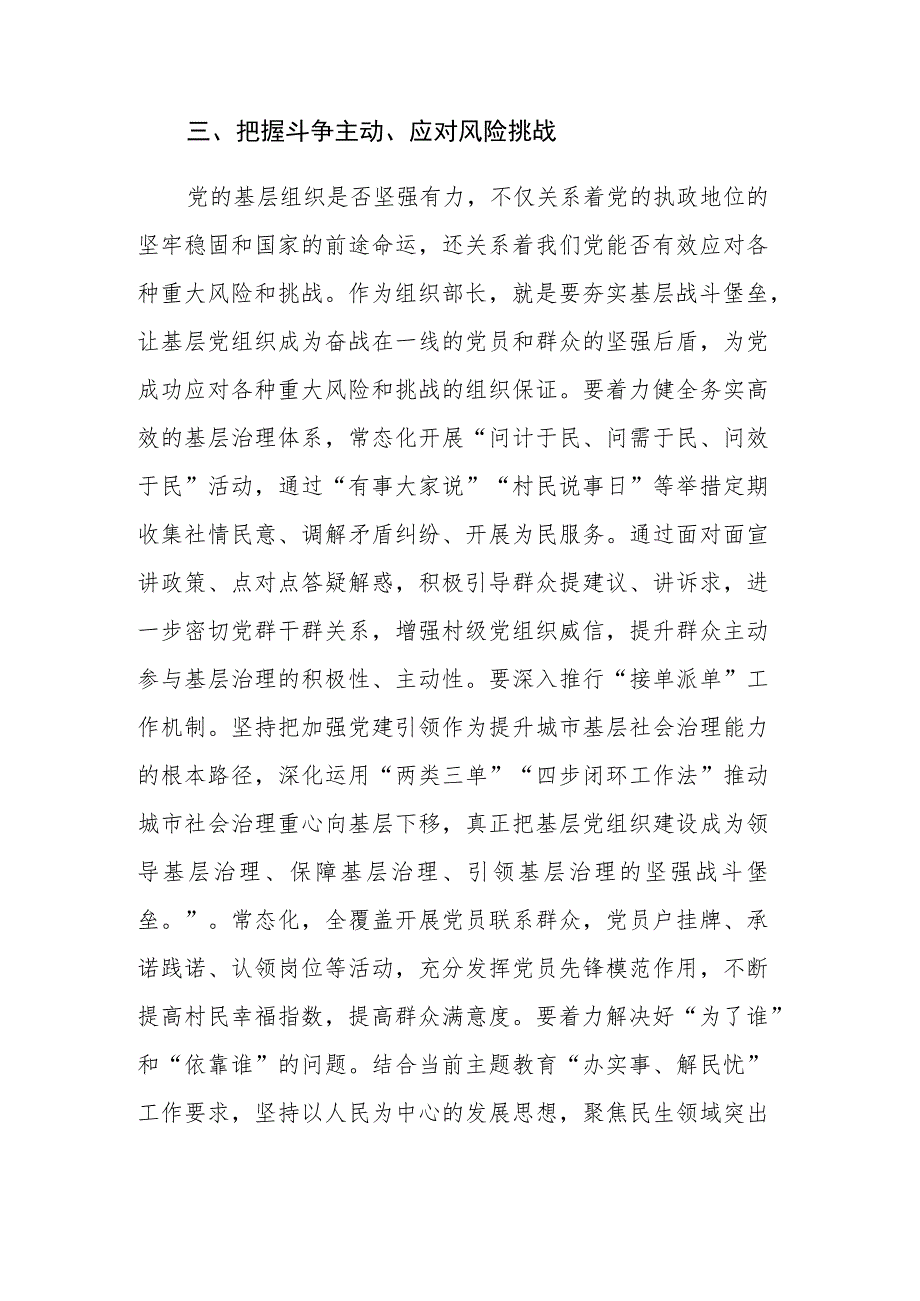 三、把握斗争主动、应对风险挑战
党的基层组织是否坚强有力，不仅关系着党的执政地位的
坚牢稳固和国家的前途命运，还关系着我们党能否有效应对各
种重大风险和挑战。作为组织部长，就是要夯实基层战斗堡垒，
让基层党组织成为奋战在一线的党员和群众的坚强后盾，为党
成功应对各种重大风险和挑战的组织保证。要着力健全务实高
效的基层治理体系，常态化开展“问计于民、问需于民、问效
于民”活动，通过“有事大家说”“村民说事日”等举措定期
收集社情民意、调解矛盾纠纷、开展为民服务。通过面对面宣
讲政策、点对点答疑解惑，积极引导群众提建议、讲诉求，进
一步密切党群干群关系，增强村级党组织威信，提升群众主动
参与基层治理的积极性、主动性。要深入推行“接单派单”工
作机制。坚持把加强党建引领作为提升城市基层社会治理能力
的根本路径，深化运用“两类三单”“四步闭环工作法”推动
城市社会治理重心向基层下移，真正把基层党组织建设成为领
导基层治理、保障基层治理、引领基层治理的坚强战斗堡
垒。”。常态化，全覆盖开展党员联系群众，党员户挂牌、承
诺践诺、认领岗位等活动，充分发挥党员先锋模范作用，不断
提高村民幸福指数，提高群众满意度。要着力解决好“为了谁”
和“依靠谁”的问题。结合当前主题教育“办实事、解民忧”
工作要求，坚持以人民为中心的发展思想，聚焦民生领域突出